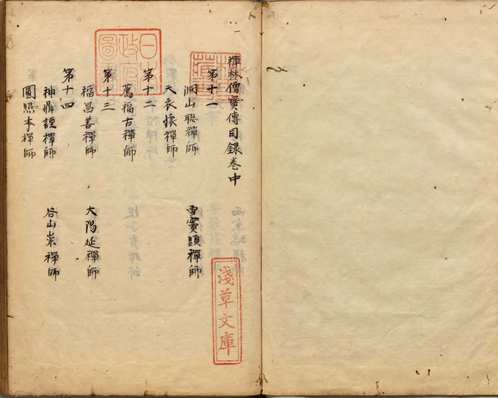 禅林僧寶傳目録巻中
第十一
洞山聡禪師 雪竇顕禪師
天衣懐禪師
第十二
薦福古禪師
第十三
福昌善禪師 大陽延禪師
第十四
神鼎諲禪師 谷山崇禪師
圓照本禪師
日本政府圖書
淺草文庫